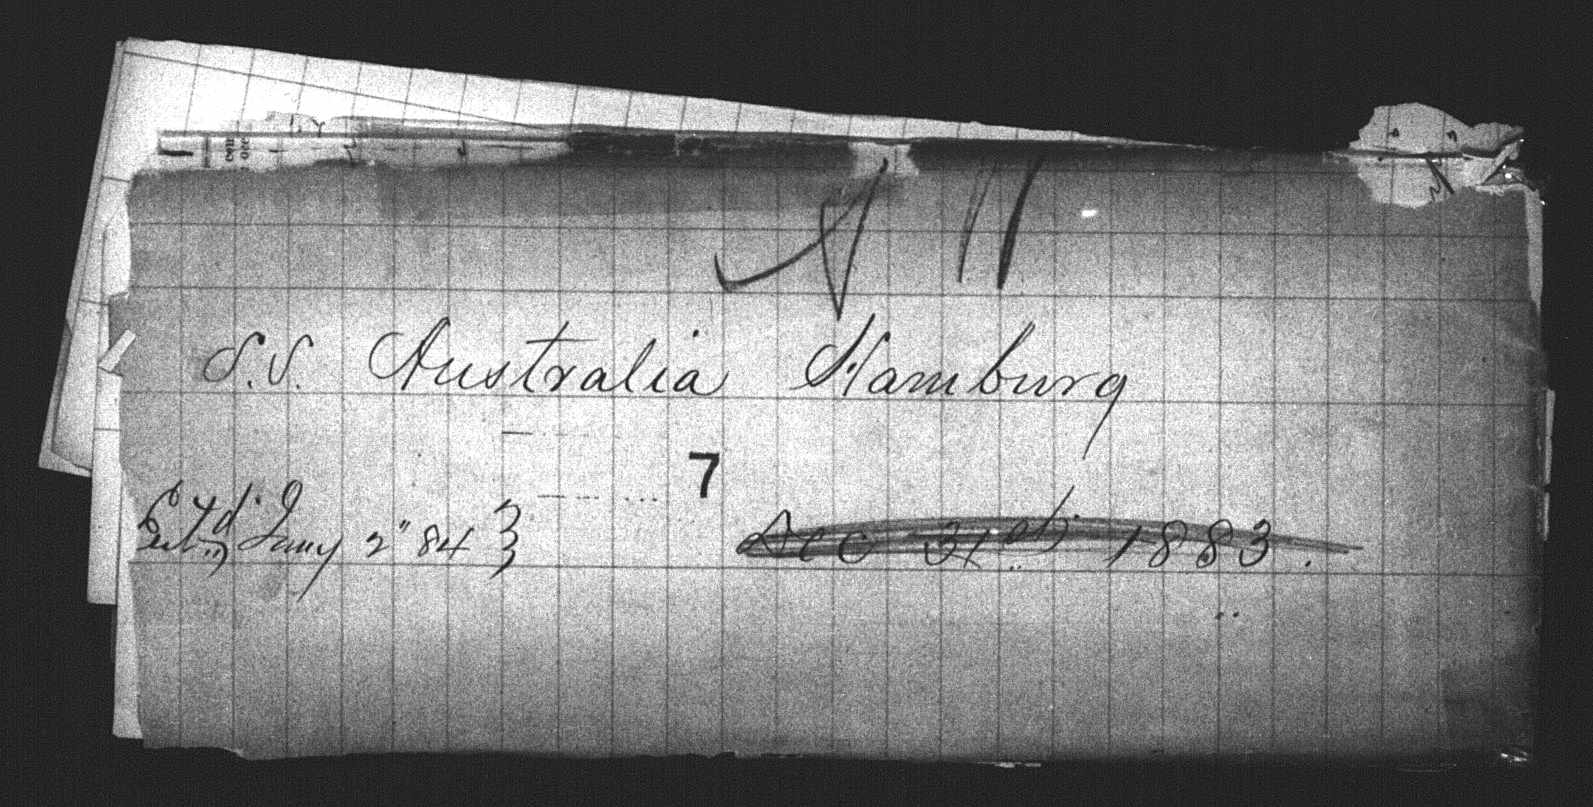 S.S. Australia Hamburg
7
Jany 2" 84
Dec 31st 1883.